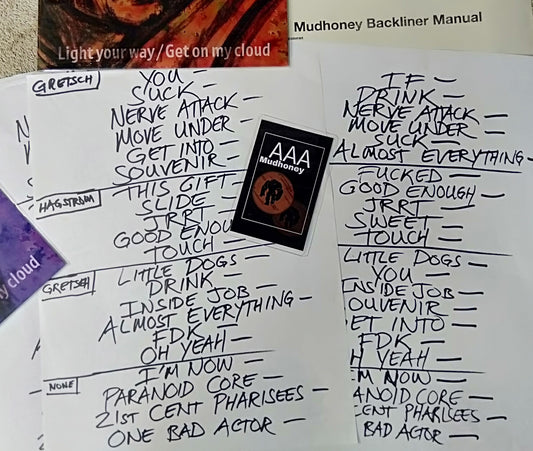 Mudhoney Backliner Manual
Light your way/Get on my cloud
GRETSCH
YOU –
SUCK –
NERVE ATTACK –
MOVE UNDER –
GET INTO –
SOUVENIR –
HAGSTROM
THIS GIFT –
SLIDE –
JRRT –
GOOD ENOU
TOUCH –
GRETSCH
LITTLE DOGS –
DRINK –
INSIDE JOB –
ALMOST EVERYTHING –
FDK –
OH YEAH –
NONE
I'M NOW –
PARANOID CORE –
21ST CENT PHARISEES –
ONE BAD ACTOR –
AAA
Mudhoney
IF –
DRINK –
NERVE ATTACK –
MOVE UNDER –
SUCK –
ALMOST EVERYTHING –
FUCKED –
GOOD ENOUGH –
JRRT –
SWEET –
TOUCH –
LITTLE DOGS –
YOU –
INSIDE JOB –
OUVENIR –
ET INTO –
FDK –
H YEAH –
'M NOW –
ANOID CORE –
CENT PHARISEES –
BAD ACTOR –
y cloud